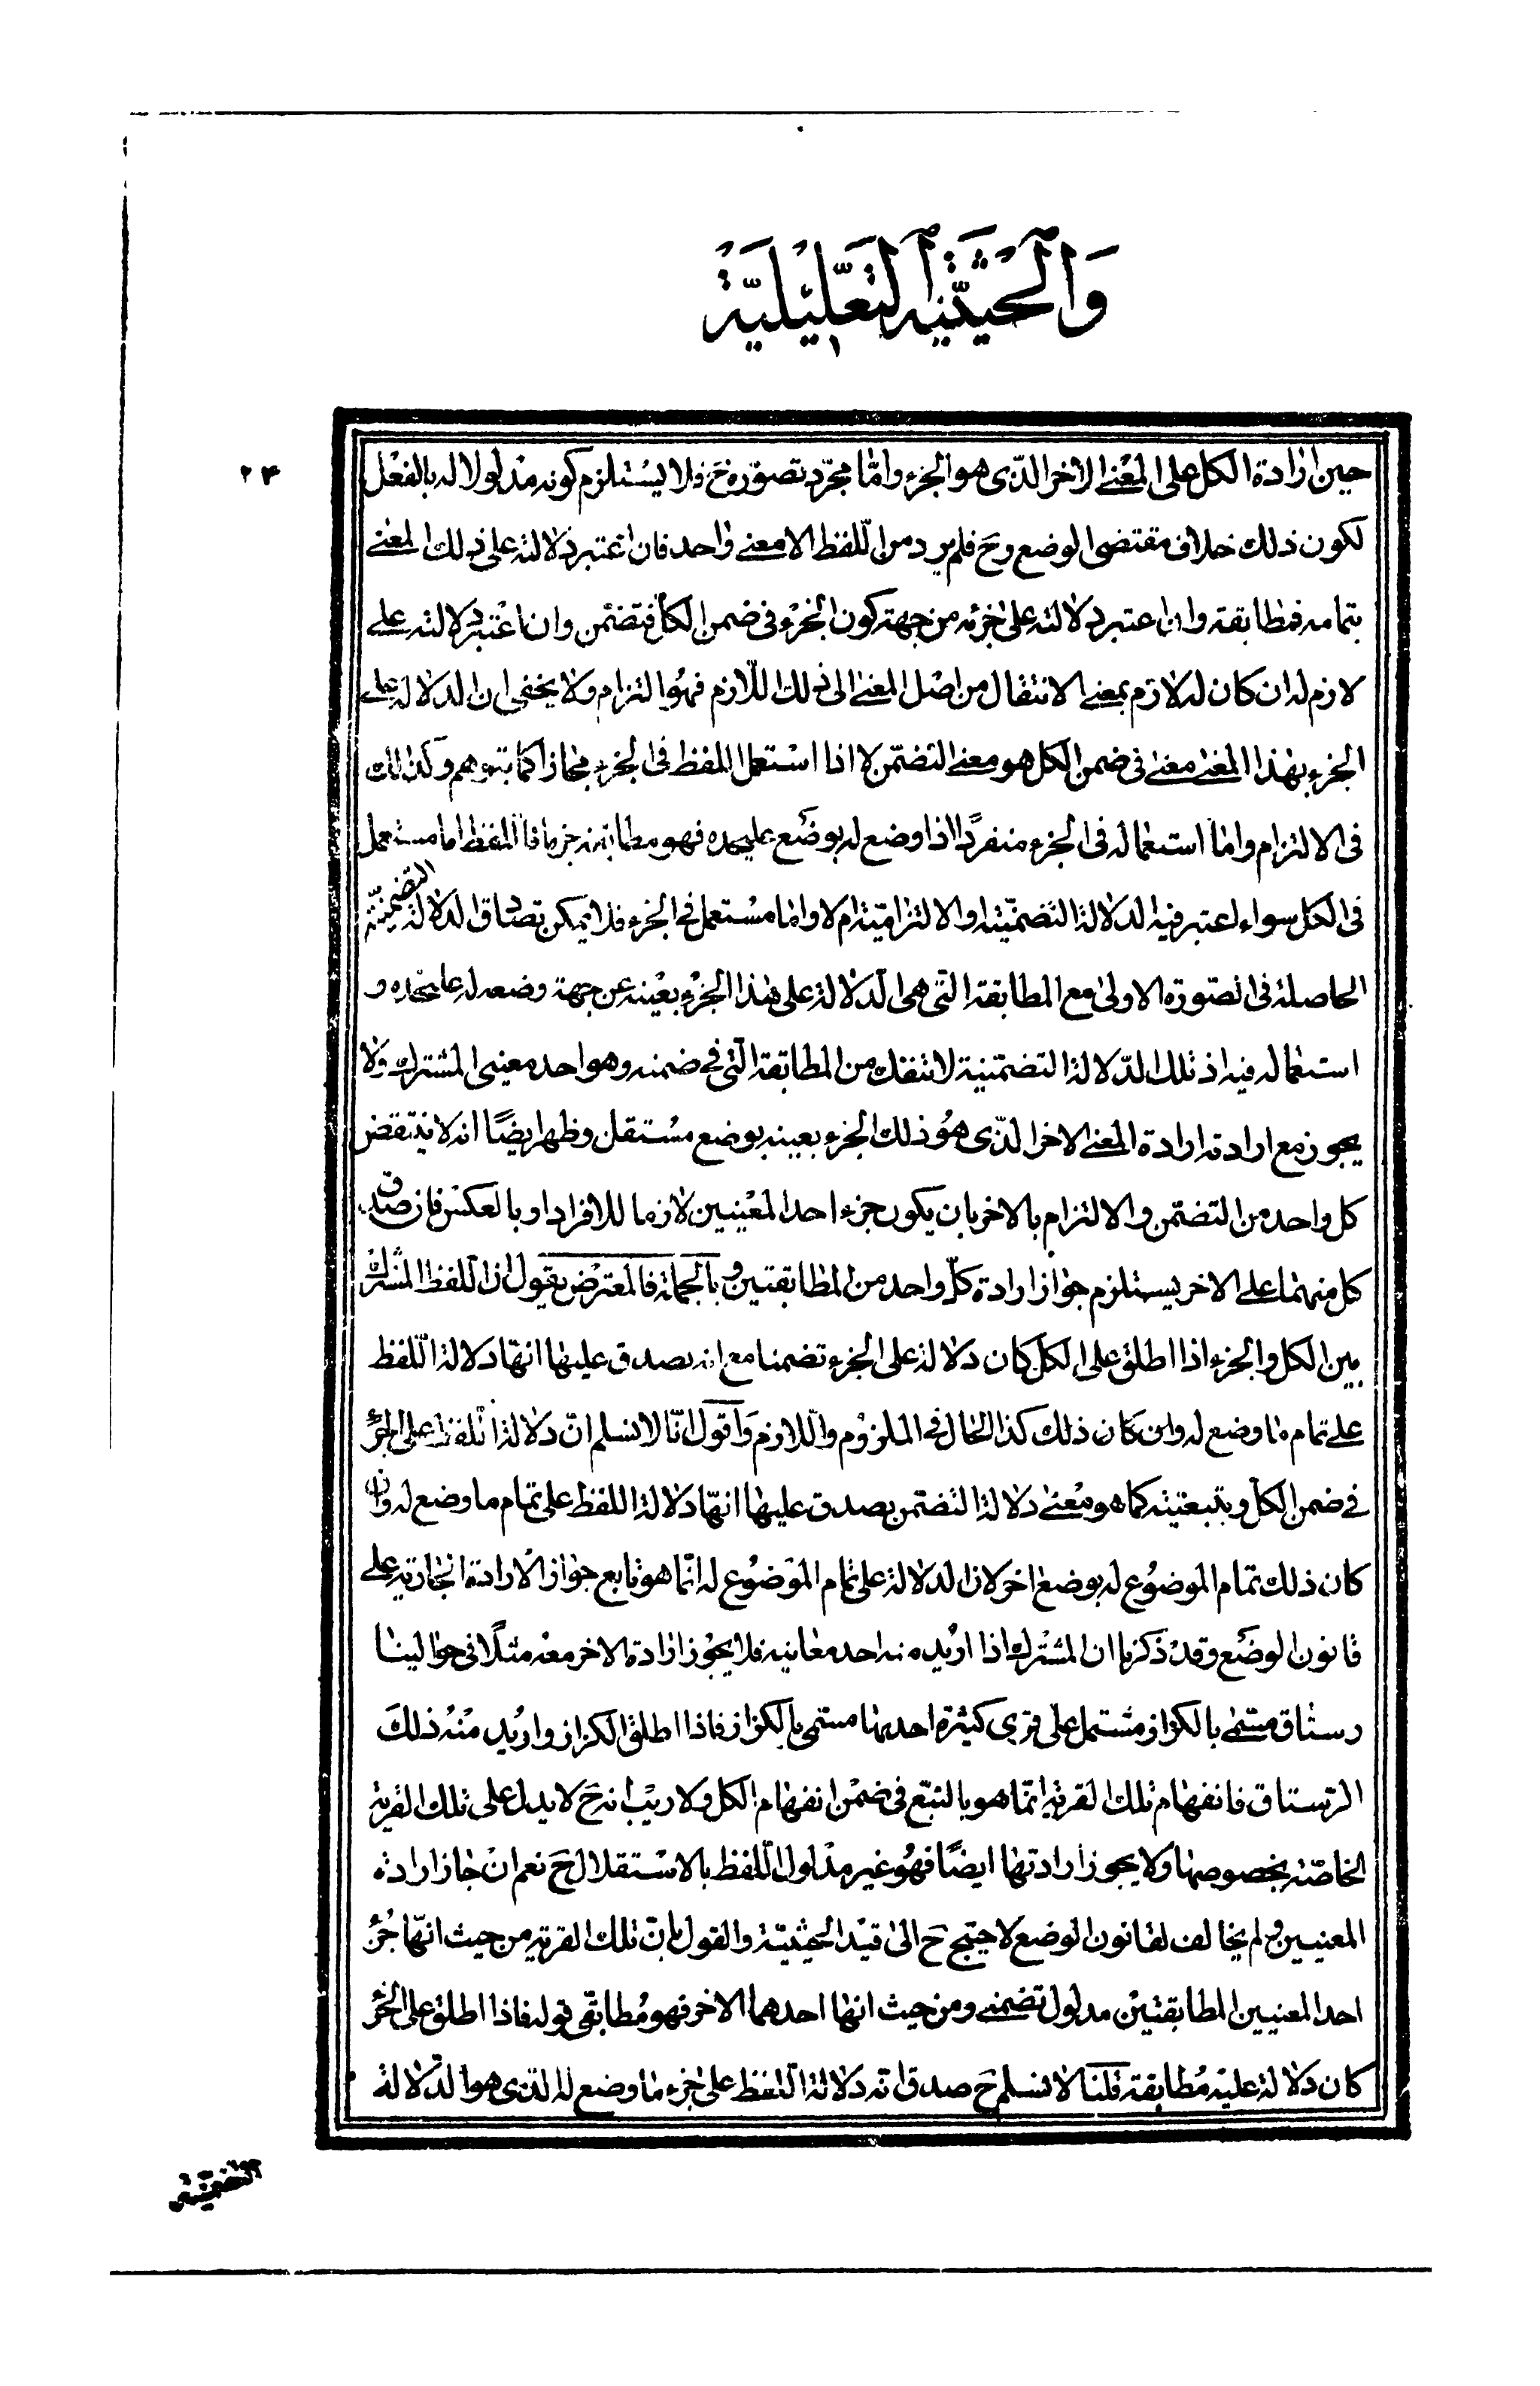 وَالْحَيْثِيَّةِ التَّعْلِيلِيَّةِ
٢٣
حين ارادة الكل على المعنى الاخر الذى هو الجزء وامّا مجرّد تصوّره ح فلا يستلزم كونه مدلولا له بالفعل
لكون ذلك خلاف مقتضى الوضع وح فلم يرد من اللّفظ الا معنى واحد فان اعتبر دلالته على ذلك المعنى
بتمامه فمطابقه وان اعتبر دلالته على جزئه من جهة كون الجزء فى ضمن الكل فتضمّن وان اعتبر دلالته على
لازم له ان كان له لازم بمعنى الانتقال من اصل المعنى الى ذلك اللّازم فهو التزام ولا يخفى ان الدلالة على
الجزء بهذا المعنى معنى فى ضمن الكل هو معنى التضمّن لا اذا استعمل اللفظ فى الجزء مجازا كما يتوهم وكذلك
فى الالتزام وامّا استعماله فى الجزء منفردًا اذا وضع له بوضع عليحده فهو مطابقة جزما فاللفظ اما مستعمل
فى الكل سواء اعتبر فيه الدلالة التضمّنيّة او الالتزاميّة ام لا وامّا مستعمل فى الجزء فلا يمكن تصادق الدلالة التضمنيّة
الحاصلة فى الصّورة الاولى مع المطابقة التّى هى الدّلالة على هذا الجزء بعينه عن جهة وضعه له عليحده و
استعماله فيه اذ تلك الدّلالة التضمّنية لا تنفك من المطابقة التّى فى ضمنه وهو احد معنيى المشترك ولا
يجوز مع ارادته ارادة المعنى الاخر الذّى هو ذلك الجزء بعينه بوضع مستقل وظهر ايضًا انه لا ينتقض
كل واحد من التضمّن والالتزام بالاخر بان يكون جزء احد المعنيين لازما للافراد او بالعكس فان صدق
كل منهما على الاخر يستلزم جواز ارادة كلّ واحد من المطابقتين وبالجملة فالمعترض يقول ان اللّفظ المشترك
بين الكل والجزء اذا اطلق على الكل كان دلالة على الجزء تضمنا مع انه يصدق عليها انهّا دلالة اللّفظ
على تمام ما وضع له وان كان ذلك كذا الحال فى الملزوم واللّازم وَاَقول انّا لا نسلم انّ دلالة اللفظ على الجزء
فى ضمن الكل وبتبعيته كما هو معنى دلالة التضمن يصدق عليها انهّا دلالة اللفظ على تمام ما وضع له وان
كان ذلك تمام الموضوع له بوضع اخر لان الدلالة على تمام الموضوع له انّما هو تابع جواز الارادة الجارية على
قانون الوضع وقد ذكرنا ان المشترك اذا اريد منه احد معانيه فلا يجوز ارادة الاخر معه مثلًا فى حوالينا
رستاق مسّمى بالكزاز مشتمل على قرى كثيرة احديها مسّمى بالكزاز فاذا اطلق الكزاز واريد منه ذلك
الرّستاق فانفهام تلك القرية انّما هو بالتبع فى ضمن انفهام الكل ولا ريب انه ح لا يدل على تلك القرية
الخاصّة بخصوصها ولا يجوز ارادتها ايضًا فهو غير مدلول اللّفظ بالاستقلال ح نعم ان جاز ارادة
المعنيين ولم يخالف لقانون الوضع لاحتيج ح الى قيد الحيثيّة والقول بانّ تلك القرية من حيث انهّا جزء
احد المعنيين المطابقتين مدلول تضمنى ومن حيث انها احدهما الاخر فهو مطابقّى قوله فاذا اطلق على الجزء
كان دلالة عليه مطابقة قلنا لا نسلم ح صدق انّه دلالة اللّفظ على جزء ما وضع له الذى هو الدّلالة
التضمّنيّة